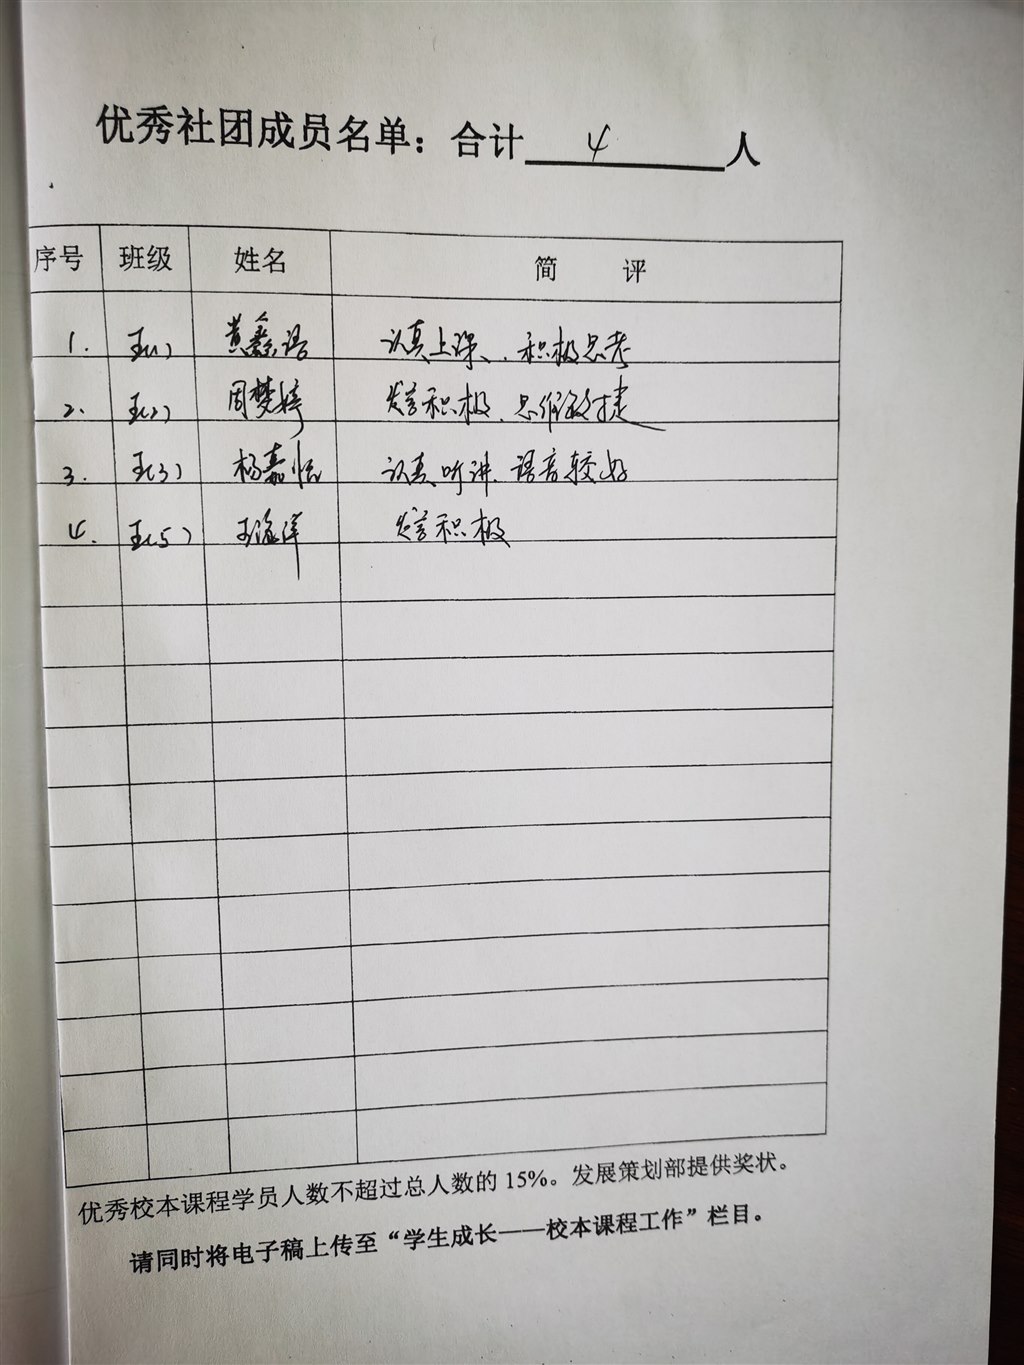 优秀社团成员名单：合计 4 人
序号 班级 姓名 简 评
1. 五(1) 黄 语 认真上课、积极思考
2. 五(2) 周梦婷 发言积极、思维敏捷
3. 五(3) 杨嘉怡 认真听讲、语音较好
4. 五(5) 王海洋 发言积极
优秀校本课程学员人数不超过总人数的 15%。发展策划部提供奖状。
请同时将电子稿上传至“学生成长——校本课程工作”栏目。